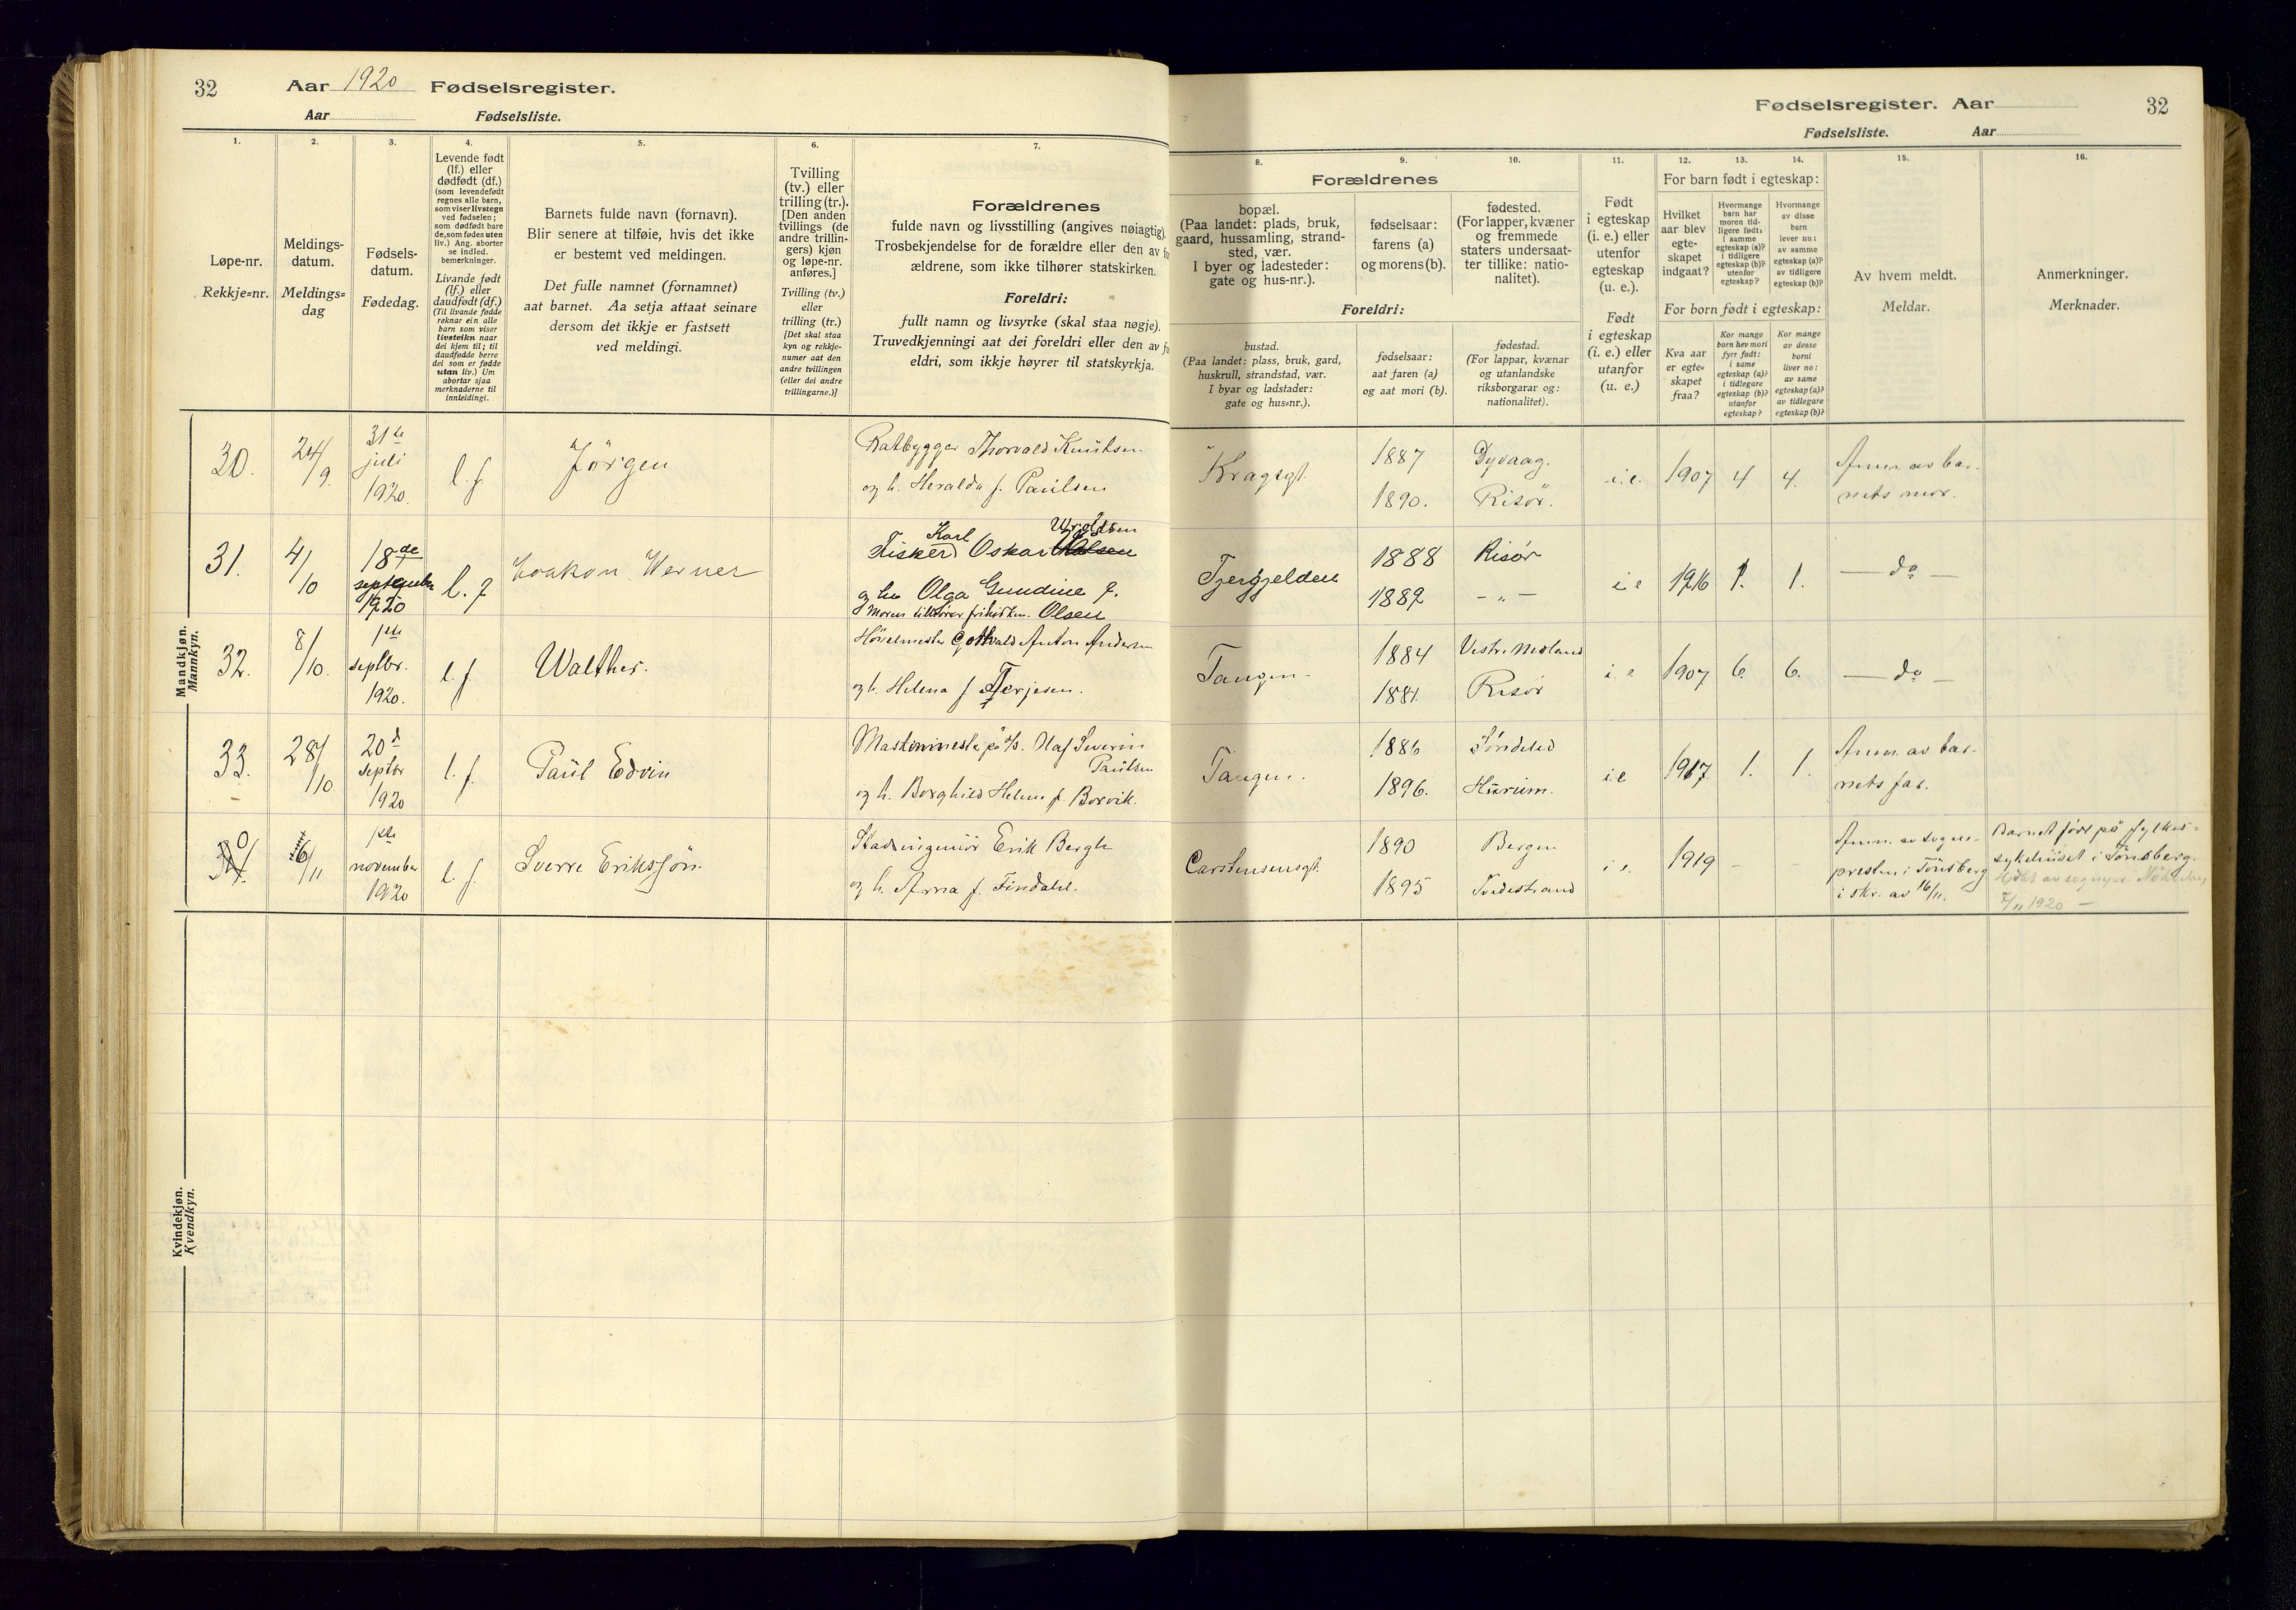 32
Aar 1920 Fødselsregister.
Aar Fødselsliste.
Fødselsregister. Aar
Fødselsliste. Aar
32
1.
Løpe-nr.
Rekkje=nr.
2.
Meldings-
datum.
Meldings=
dag
3.
Fødsels-
datum.
Fødedag.
4.
Levende født
(lf.) eller
dødfødt (df.)
(som levendefødt
regnes alle barn,
som viser livstegn
ved fødselen;
som dødfødt bare
de, som fødes uten
liv.) Ang. aborter
se indled.
bemerkninger.
Livande født
(lf.) eller
daudfødt (df.)
(Til livande fødde
reknar ein alle
barn som viser
livsteikn naar
dei kjem til; til
daudfødde berre
dei som er fødde
utan liv.) Um
abortar sjaa
merknaderne til
innleidingi.
5.
Barnets fulde navn (fornavn).
Blir senere at tilføie, hvis det ikke
er bestemt ved meldingen.
Det fulle namnet (fornamnet)
aat barnet. Aa setja attaat seinare
dersom det ikkje er fastsett
ved meldingi.
6.
Tvilling
(tv.) eller
trilling (tr.).
[Den anden
tvillings (de
andre trillin-
gers) kjøn
og løpe-nr.
anføres.]
Tvilling (tv.)
eller
trilling (tr.)
[Det skal staa
kyn og rekkje-
numer aat den
andre tvillingen
(eller dei andre
trillingarne.)]
7.
Forældrenes
fulde navn og livsstilling (angives nøiagtig).
Trosbekjendelse for de forældre eller den av fo
ældrene, som ikke tilhører statskirken.
Foreldri:
fullt namn og livsyrke (skal staa nøgje).
Truvedkjenningi aat dei foreldri eller den av fo
eldri, som ikkje høyrer til statskyrkja.
8.
9.
10.
Forældrenes
bopæl.
(Paa landet: plads, bruk,
gaard, hussamling, strand-
sted, vær.
I byer og ladesteder:
gate og hus-nr.).
fødselsaar:
farens (a)
og morens (b).
fødested.
(For lapper, kvæner
og fremmede
staters undersaat-
ter tillike: natio-
nalitet).
Foreldri:
bustad.
(Paa landet: plass, bruk, gard,
huskrull, strandstad, vær.
I byar og ladstader:
gate og hus=nr.).
fødselsaar:
aat faren (a)
og aat mori (b).
fødestad.
(For lappar, kvænar
og utanlandske
riksborgarar og:
nationalitet).
11.
Født
i egteskap
(i. e.) eller
utenfor
egteskap
(u. e.).
Født
i egteskap
(i. e.) eller
utanfor
(u. e.)
12.
13.
14.
For barn født i egteskap:
Hvilket
aar blev
egte-
skapet
indgaat?
Hvormange
barn har
moren tid-
ligere født:
i samme
egteskap (a)?
i tidligere
egteskap (b)?
utenfor
egteskap?
Hvormange
av disse
barn
lever nu:
av samme
egteskap (a)?
av tidligere
egteskap (b)?
For born født i egteskap:
Kva aar
er egte=
skapet
fraa?
Kor mange
born hev mori
fyrr født:
i same
egteskap (a)?
i tidlegare
egteskap (b)?
utanfor
egteskap?
Kor mange
av desse
borni
liver no:
av same
egteskap (a)?
av tidlegare
egteskap (b)?
15.
Av hvem meldt.
Meldar.
16.
Anmerkninger.
Merknader.
Mandkjøn.
Mannkyn.
30. 24/9. 31te juli 1920. l. f. Jörgen
Baatbygger Thorvald Knutsen
og h. Heralda f. Paulsen
Kragsgt. 1887 Dyvaag. i. e. 1907 4 4. Anm. av bar-
1890. Risör. nets mor.
31. 4/10 18de september 1920 l. f. Haakon Werner
Fisker Karl Oskar Uroldsen
og h. Olga Gundine f.
Moren tilhører frikirken. Olsen
Tjergjelden 1888 Risör i e 1916 1. 1. — do —
1889 - „ -
32. 8/10. 1ste septbr. 1920. l. f. Walther.
Hövelmester Gothvald Anton Andersen
og h. Helena f. Terjesen.
Tangen. 1884 Vestre Moland i e 1907 6. 6. — do —
1881. Risör
33. 28/10 20d septbr 1920 l. f. Paul Edvin
Maskinmester på d/s. Olaf Severin
Paulsen
og h. Borghild Helene f. Borvik.
Tangen. 1886 Söndeled i e 1917 1. 1. Anm. av bar-
1896. Hurum. nets far.
30 16/11 1ste november 1920 l. f. Sverre Eriksson
Stadsingeniör Erik Bergh
og h. Arna f. Findahl.
Carstensensgt. 1890 Bergen i e. 1919 - -
1895 Tvedestrand
Anm. av sogne-
presten i Tönsberg
i skr. av 16/11.
Barnet född på fylkes-
sykehuset i Tönsberg.
1920 —
Kvindekjøn.
Kvendkyn.